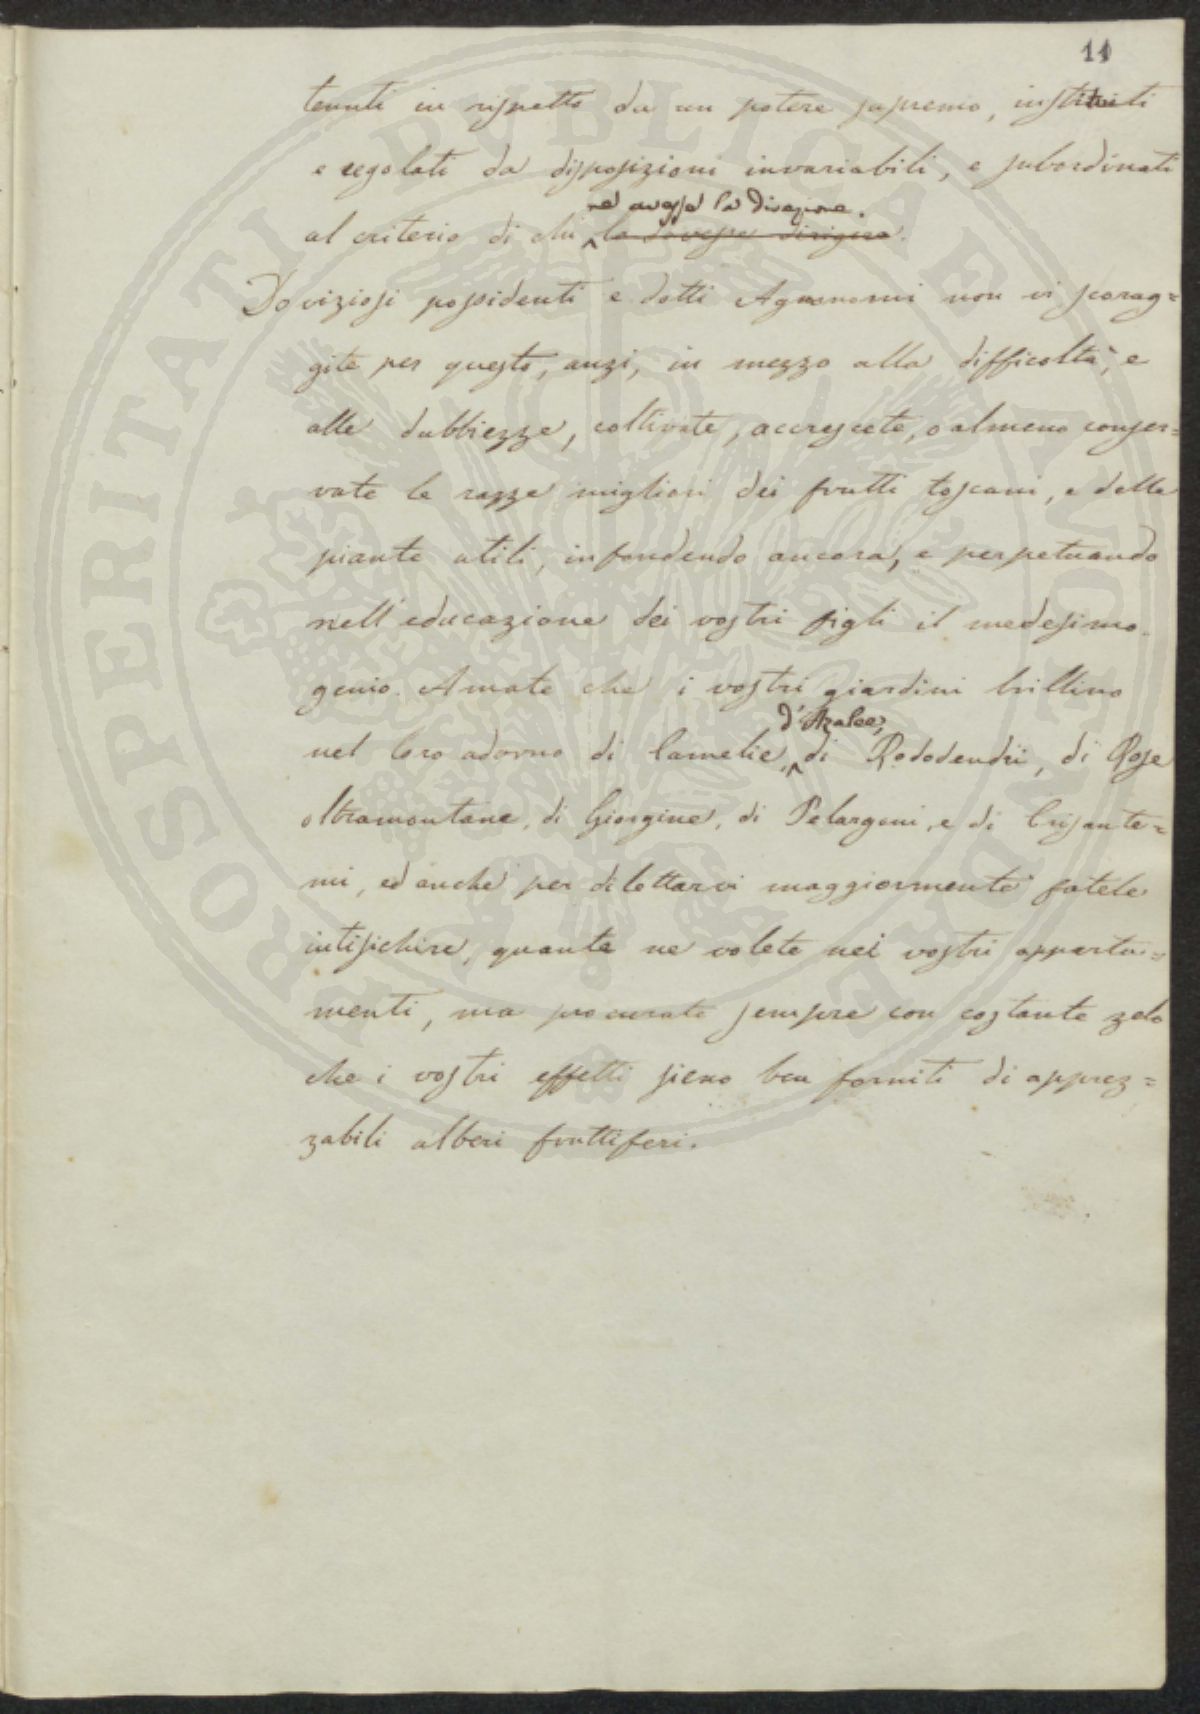 11
tenuti in rispetto da un potere supremo, instituiti
e regolati da disposizioni invariabili, e subordinati
ne avesse la direzione.
al criterio di chi la dovesse dirigere.
Doviziosi possidenti e dotti Agronomi non vi scorag=
gite per questo, anzi, in mezzo alla difficoltà, e
alle dubbiezze, coltivate, accrescete, o almeno conser=
vate le razze migliori dei frutti toscani, e delle
piante utili, infondendo ancora, e perpetuando
nell'educazione dei vostri figli il medesimo
genio. Amate che i vostri giardini brillino
d'Azalee,
nel loro adorno di Camelie, di Rododendri, di Rose
oltramontane, di Giorgine, di Pelargoni, e di Crisante=
mi, ed anche per dilettarvi maggiormente fatele
intisichire, quante ne volete nei vostri apparta=
menti, ma procurate sempre con costante zelo
che i vostri effetti sieno ben forniti di apprez=
zabili alberi fruttiferi.
PROSPERITATI PUBLICAE AUGENDAE